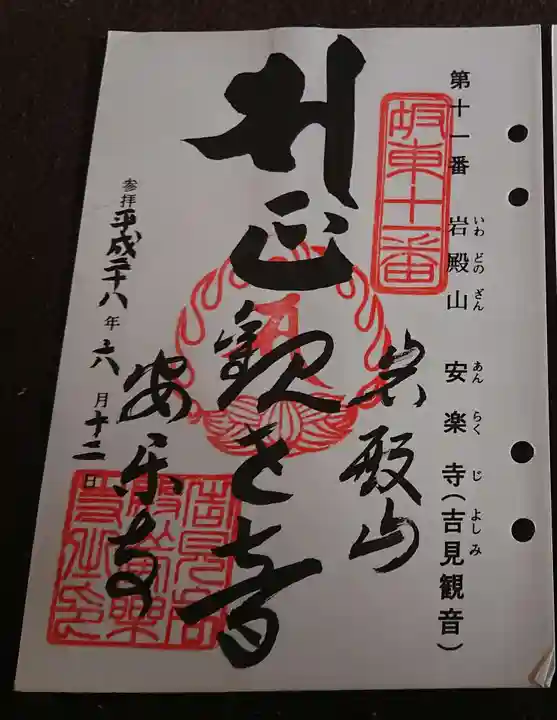 第十一番 岩殿山 安楽寺(吉見観音)
いわ どの ざん あん らく じ よし み
坂東十一番
岩殿山
正観世音
安楽寺
参拝 平成二十八年 六月 十二日